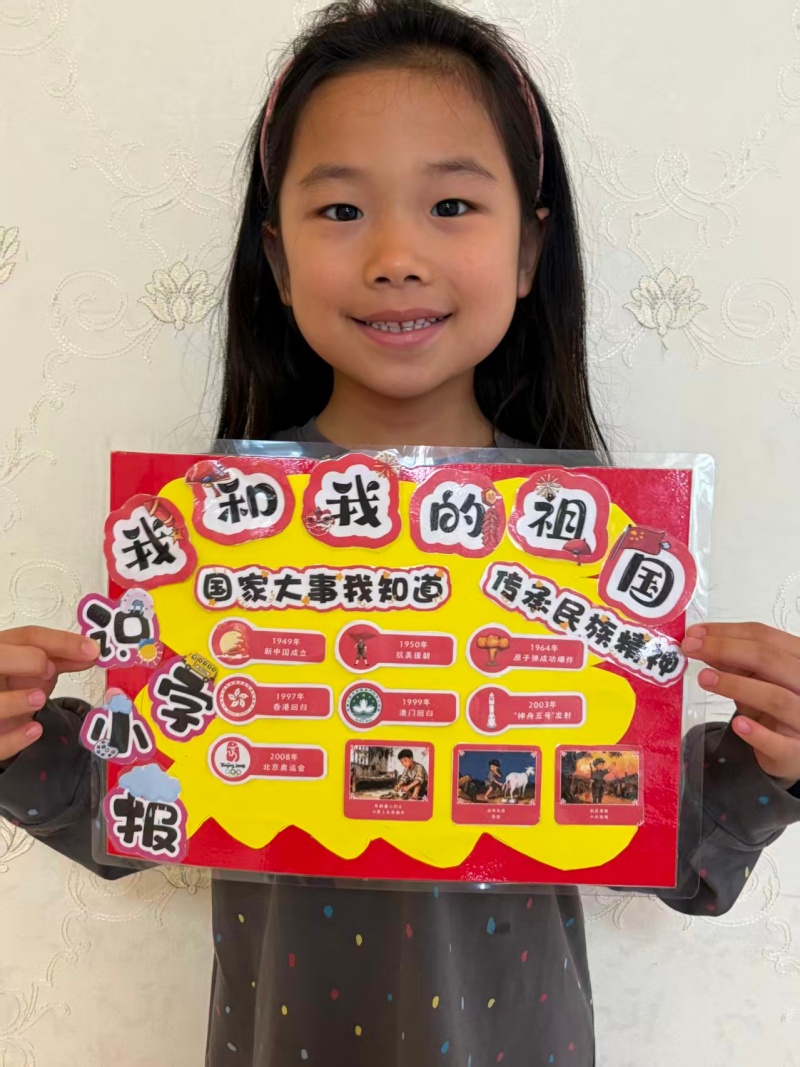 我和我的祖国
国家大事我知道
传承民族精神
识字小报
1949年
新中国成立
1950年
抗美援朝
1964年
原子弹成功爆炸
1997年
香港回归
1999年
澳门回归
2003年
“神舟五号”发射
Beijing 2008
2008年
北京奥运会